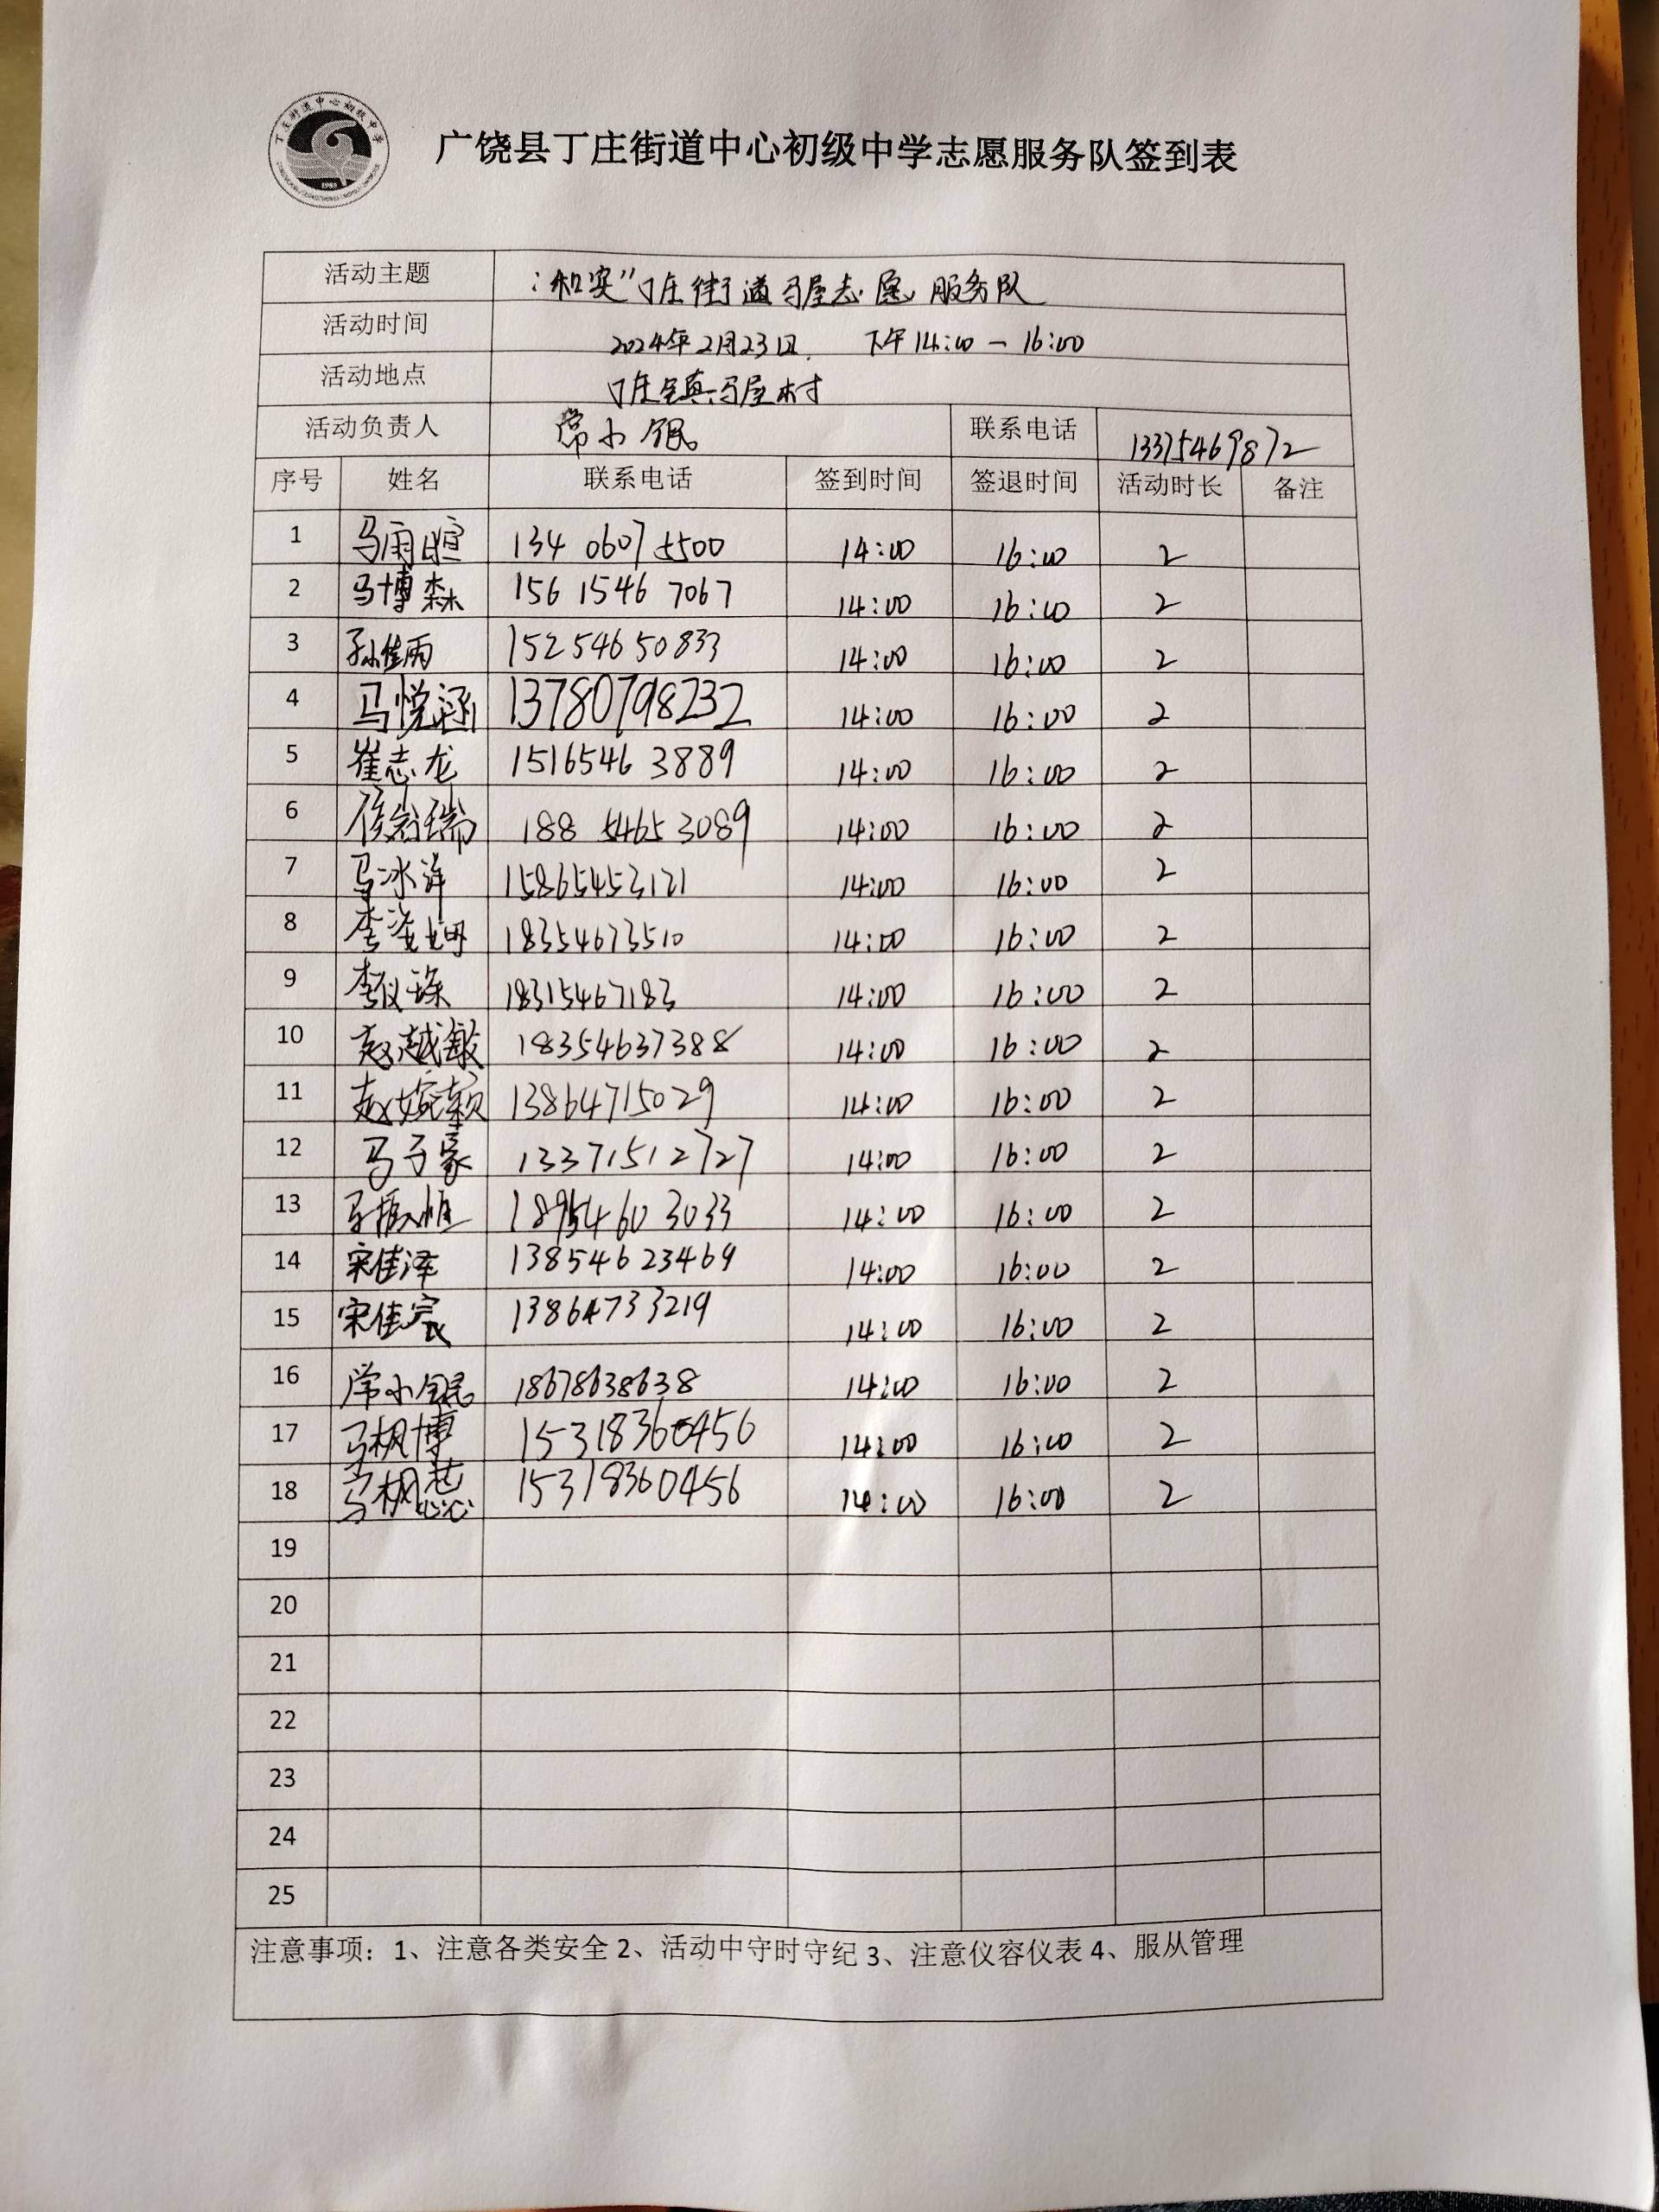 丁庄街道中心初级中学
1985
广饶县丁庄街道中心初级中学志愿服务队签到表
活动主题 "和实"丁庄街道马屋志愿服务队
活动时间 2024年2月23日. 下午14:00 — 16:00
活动地点 丁庄镇马屋村
活动负责人 常小锟 联系电话 13375469872
序号 姓名 联系电话 签到时间 签退时间 活动时长 备注
1 马雨暄 134 0607 5500 14:00 16:00 2
2 马博森 156 1546 7067 14:00 16:00 2
3 孙佳雨 152 546 50833 14:00 16:00 2
4 马悦涵 13780798232 14:00 16:00 2
5 崔志龙 1516546 3889 14:00 16:00 2
6 侯岩瑞 188 5465 3089 14:00 16:00 2
7 马冰洋 15865453121 14:00 16:00 2
8 李凌姗 18354673510 14:00 16:00 2
9 李仪琛 18315467183 14:00 16:00 2
10 赵越敏 18354637388 14:00 16:00 2
11 赵婉颖 13864715029 14:00 16:00 2
12 马子豪 13371512727 14:00 16:00 2
13 马振恒 18954603033 14:00 16:00 2
14 宋佳泽 138546 23469 14:00 16:00 2
15 宋佳宸 13864733219 14:00 16:00 2
16 常小锟 18678638638 14:00 16:00 2
17 马枫博 15318360456 14:00 16:00 2
18 马枫蕊 15318360456 14:00 16:00 2
19
20
21
22
23
24
25
注意事项：1、注意各类安全 2、活动中守时守纪 3、注意仪容仪表 4、服从管理